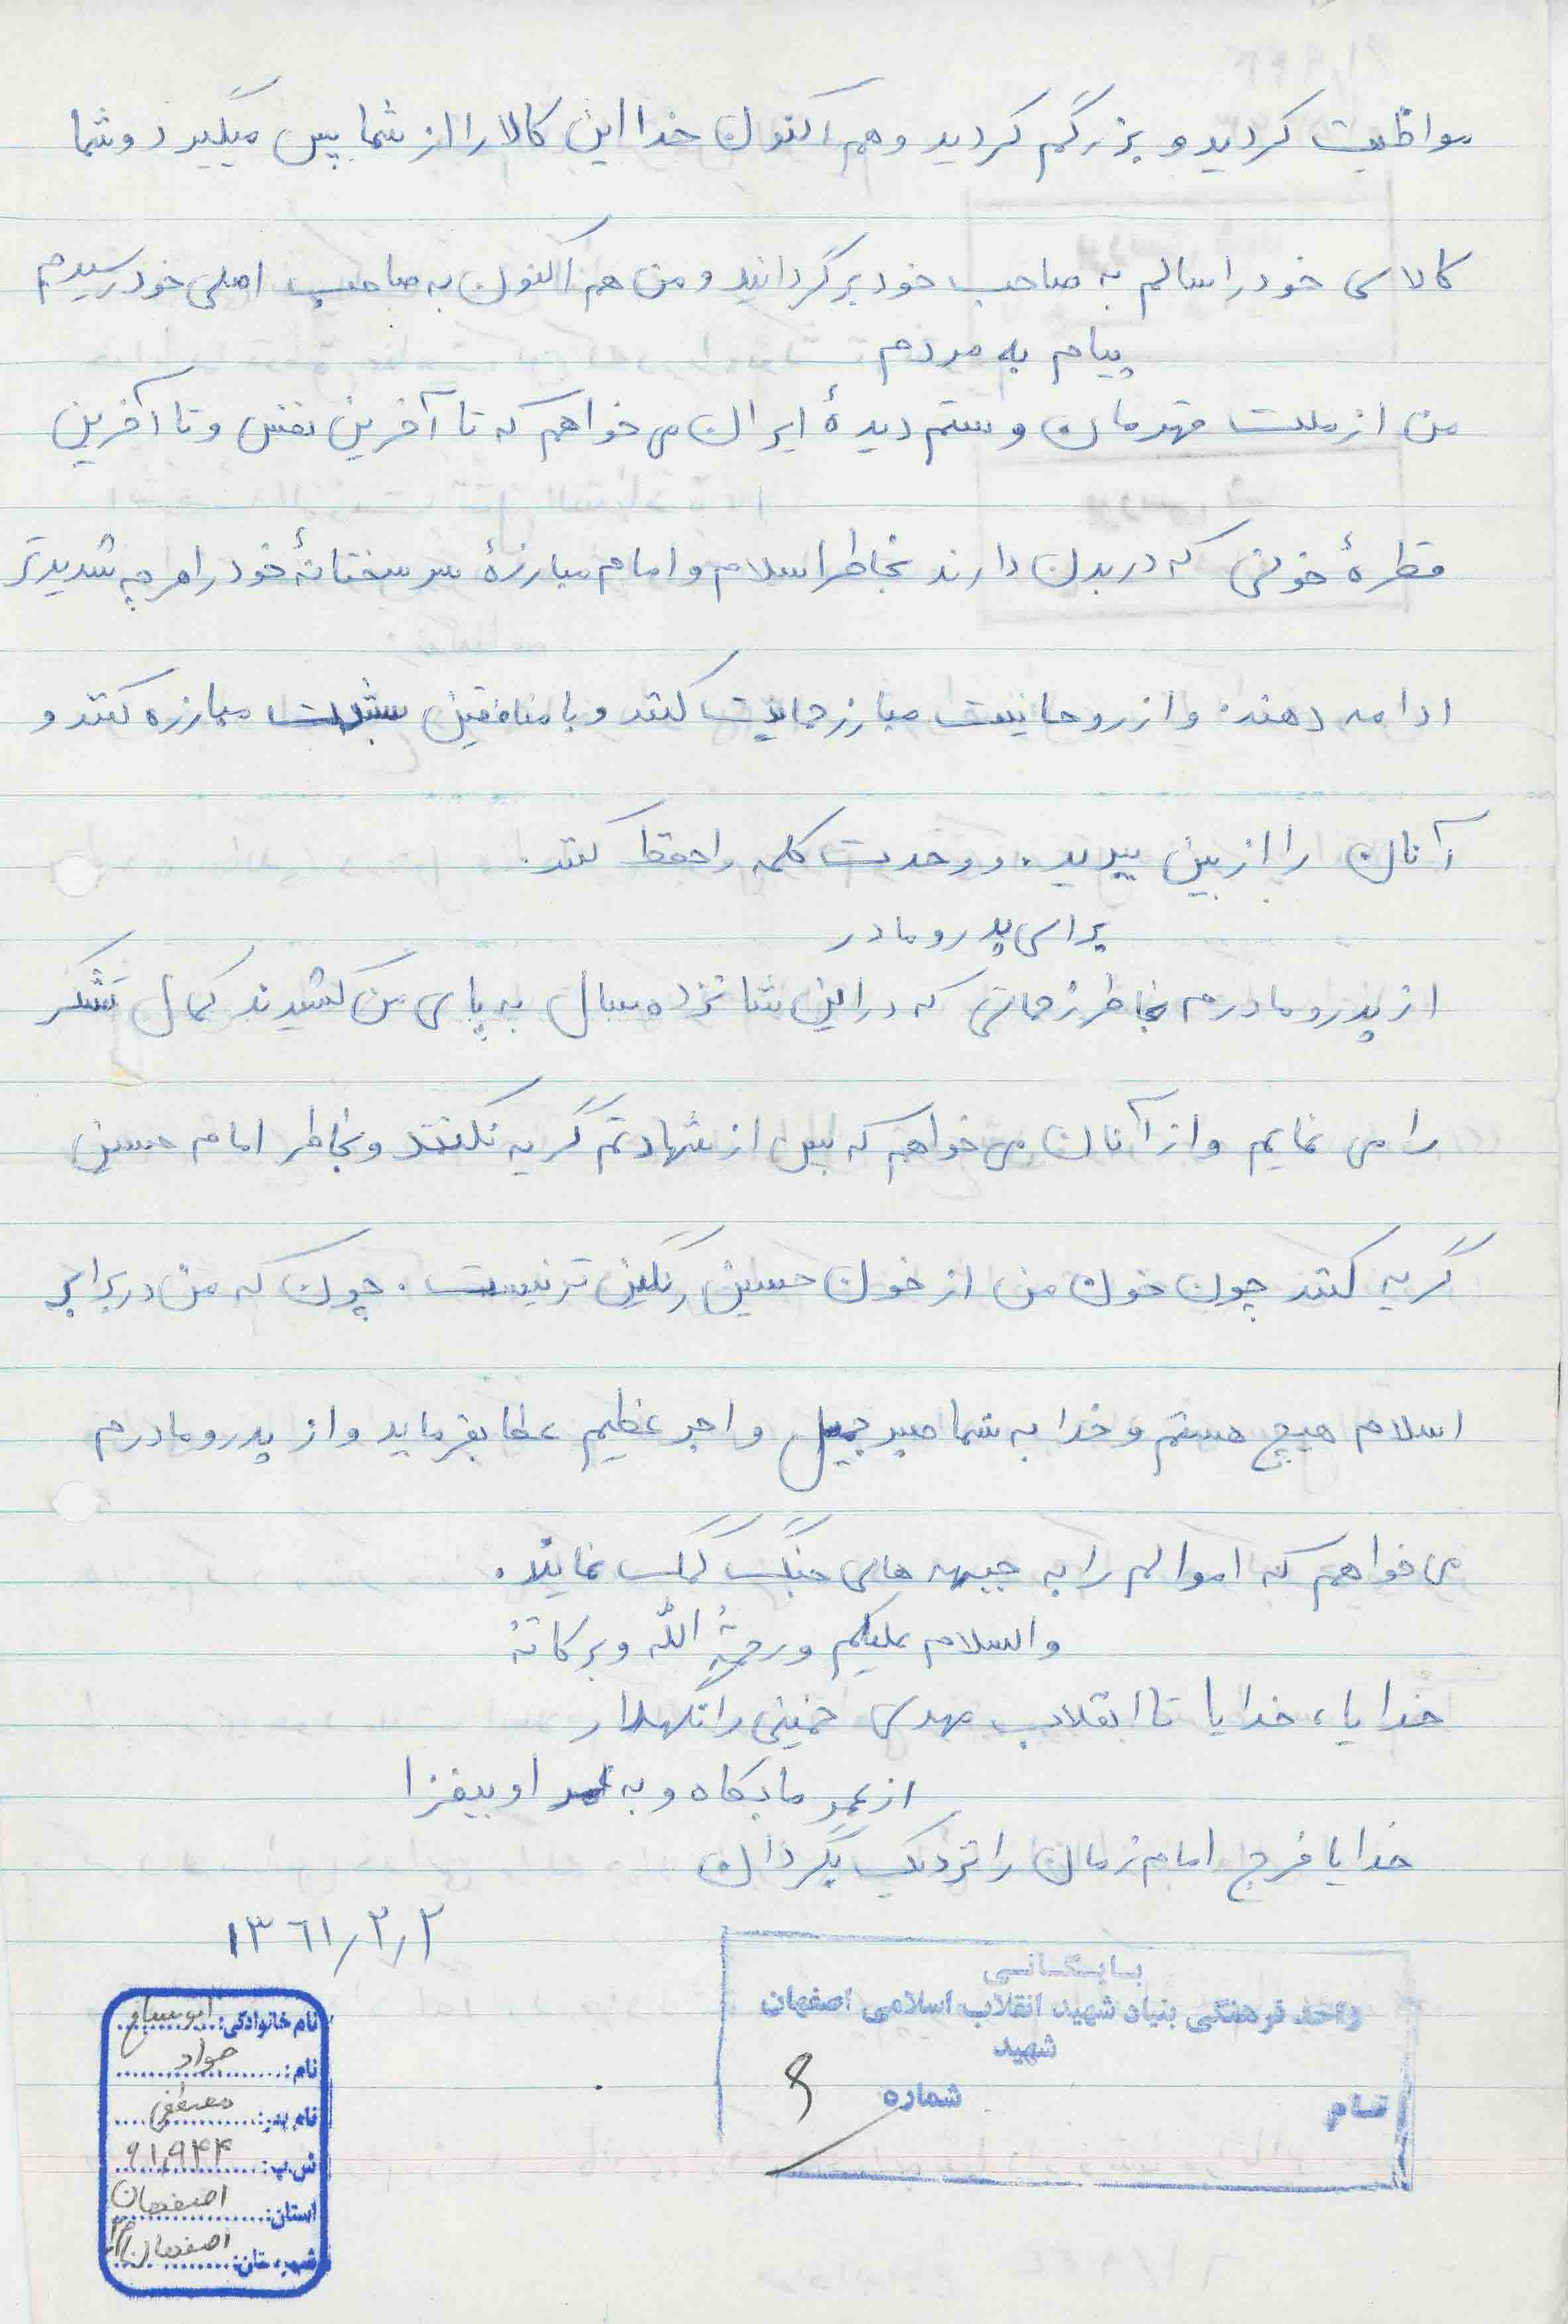 مواظبت کردید و بزرگم کردید و هم اکنون خدا این کالا را از شما پس میگیرد و شما
کالای خود را سالم به صاحب خود برگردانید و من هم اکنون به صاحب اصلی خود رسیدم
پیام به مردم
من از ملت قهرمان و ستم دیدهٔ ایران می خواهم که تا آخرین نفس و تا آخرین
قطرهٔ خونی که در بدن دارند بخاطر اسلام و امام مبارزهٔ سرسختانهٔ خود را هر چه شدیدتر
ادامه دهند. و از روحانیت مبارز حمایت کنند و با منافقین بشدت مبارزه کنند و
آنان را از بین ببرید. و وحدت کلمه را حفظ کنند.
برای پدر و مادر
از پدر و مادرم بخاطر زحماتی که در این شانزده سال به پای من کشیدند کمال تشکر
را می نمایم و از آنان می خواهم که پس از شهادتم گریه نکنند و بخاطر امام حسین
گریه کنند چون خون من از خون حسین رنگین تر نیست. چون که من در برابر
اسلام هیچ هستم و خدا به شما صبر جمیل و اجر عظیم عطا بفرماید و از پدر و مادرم
می خواهم که اموالم را به جبهه های جنگ کمک نمایند.
والسلام علیکم ورحمةُ اللّه وبرکاتهُ
خدایا، خدایا تا انقلاب مهدی خمینی را نگهدار
از عمر ما بکاه و به عمر او بیفزا
خدایا فرج امام زمان را نزدیک بگردان
۱۳۶۱/۳/۲
بایگانی
واحد فرهنگی بنیاد شهید انقلاب اسلامی اصفهان
شهید
نام شماره
نام خانوادگی:
نام: جواد
نام پدر: مصطفی
ش.پ: ۶۱۸۹۴۴
استان: اصفهان
شهرستان: اصفهان